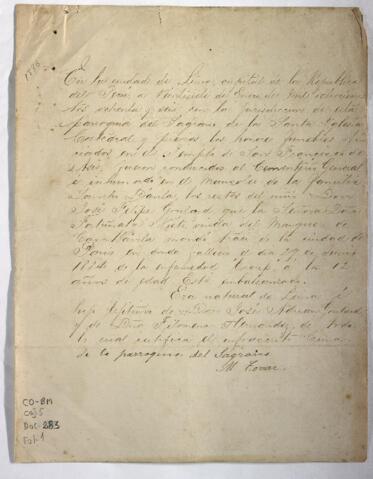 1886
En la ciudad de Lima, capital de la República
del Perú, a Veintiuno de Enero de mil ochocien
tos ochenta y seis con la jurisdiccion de esta
parroquia del Sagrario de la Santa Iglesia
Catedral y previas las honras funebres ofi
ciadas en el Templo de San Francisco de
Asis, fueron conducidos al Cementerio General
e inhumado en el Mausoleo de la familia
los restos del niño Don
José Felipe que la Señora Doña
Fortunata Nieto viuda del Marquez de
Casa Dávila mandó traer de la ciudad de
Paris en donde falleció el dia 29 de
1884 de la enfermedad Croup, á la 12
años de edad. Está embalsamado.
Era natural de Lima é
hijo lejítimo de Don José Adrian
y de Dña Filomena Hernandez, de todo
lo cual certifica el infrascrito
de la parroquia del Sagrario
M. Tovar
CO-BM
Caj 5
Doc 283
Fol. 1